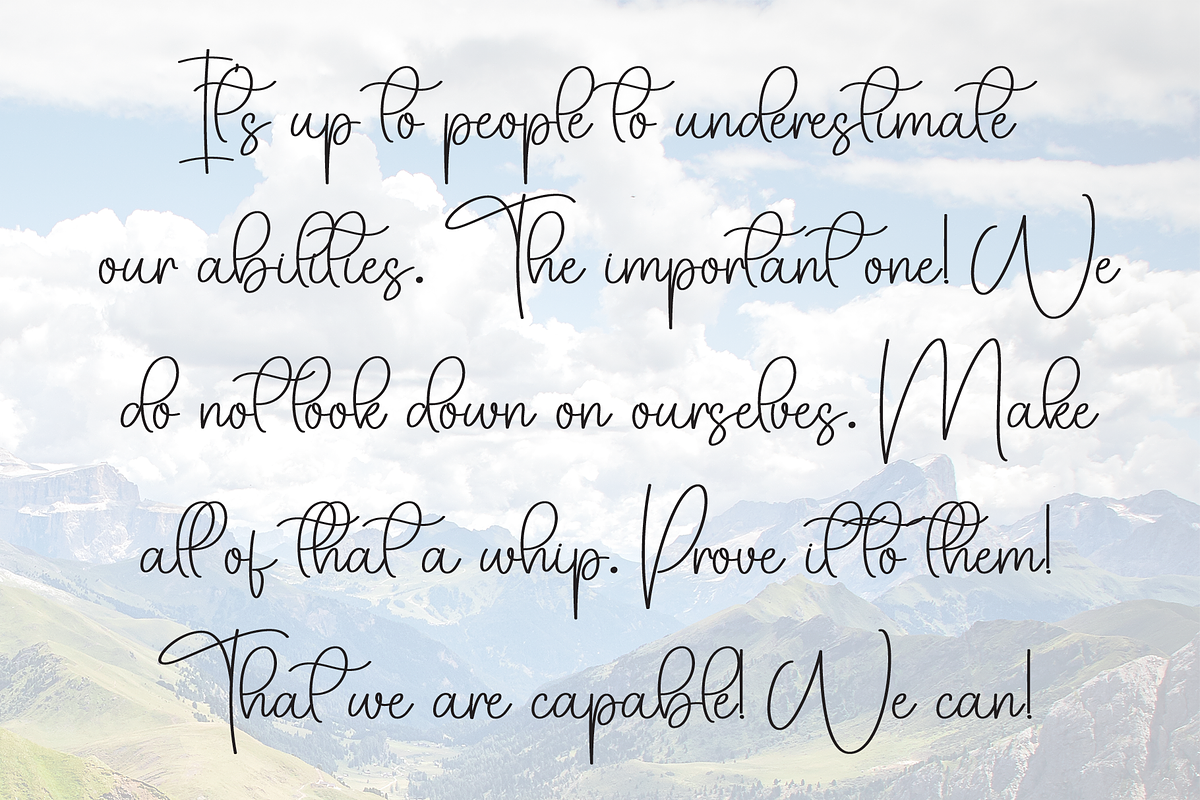 It's up to people to underestimate
our abilities. The important one! We
do not look down on ourselves. Make
all of that a whip. Prove it to them!
That we are capable! We can!